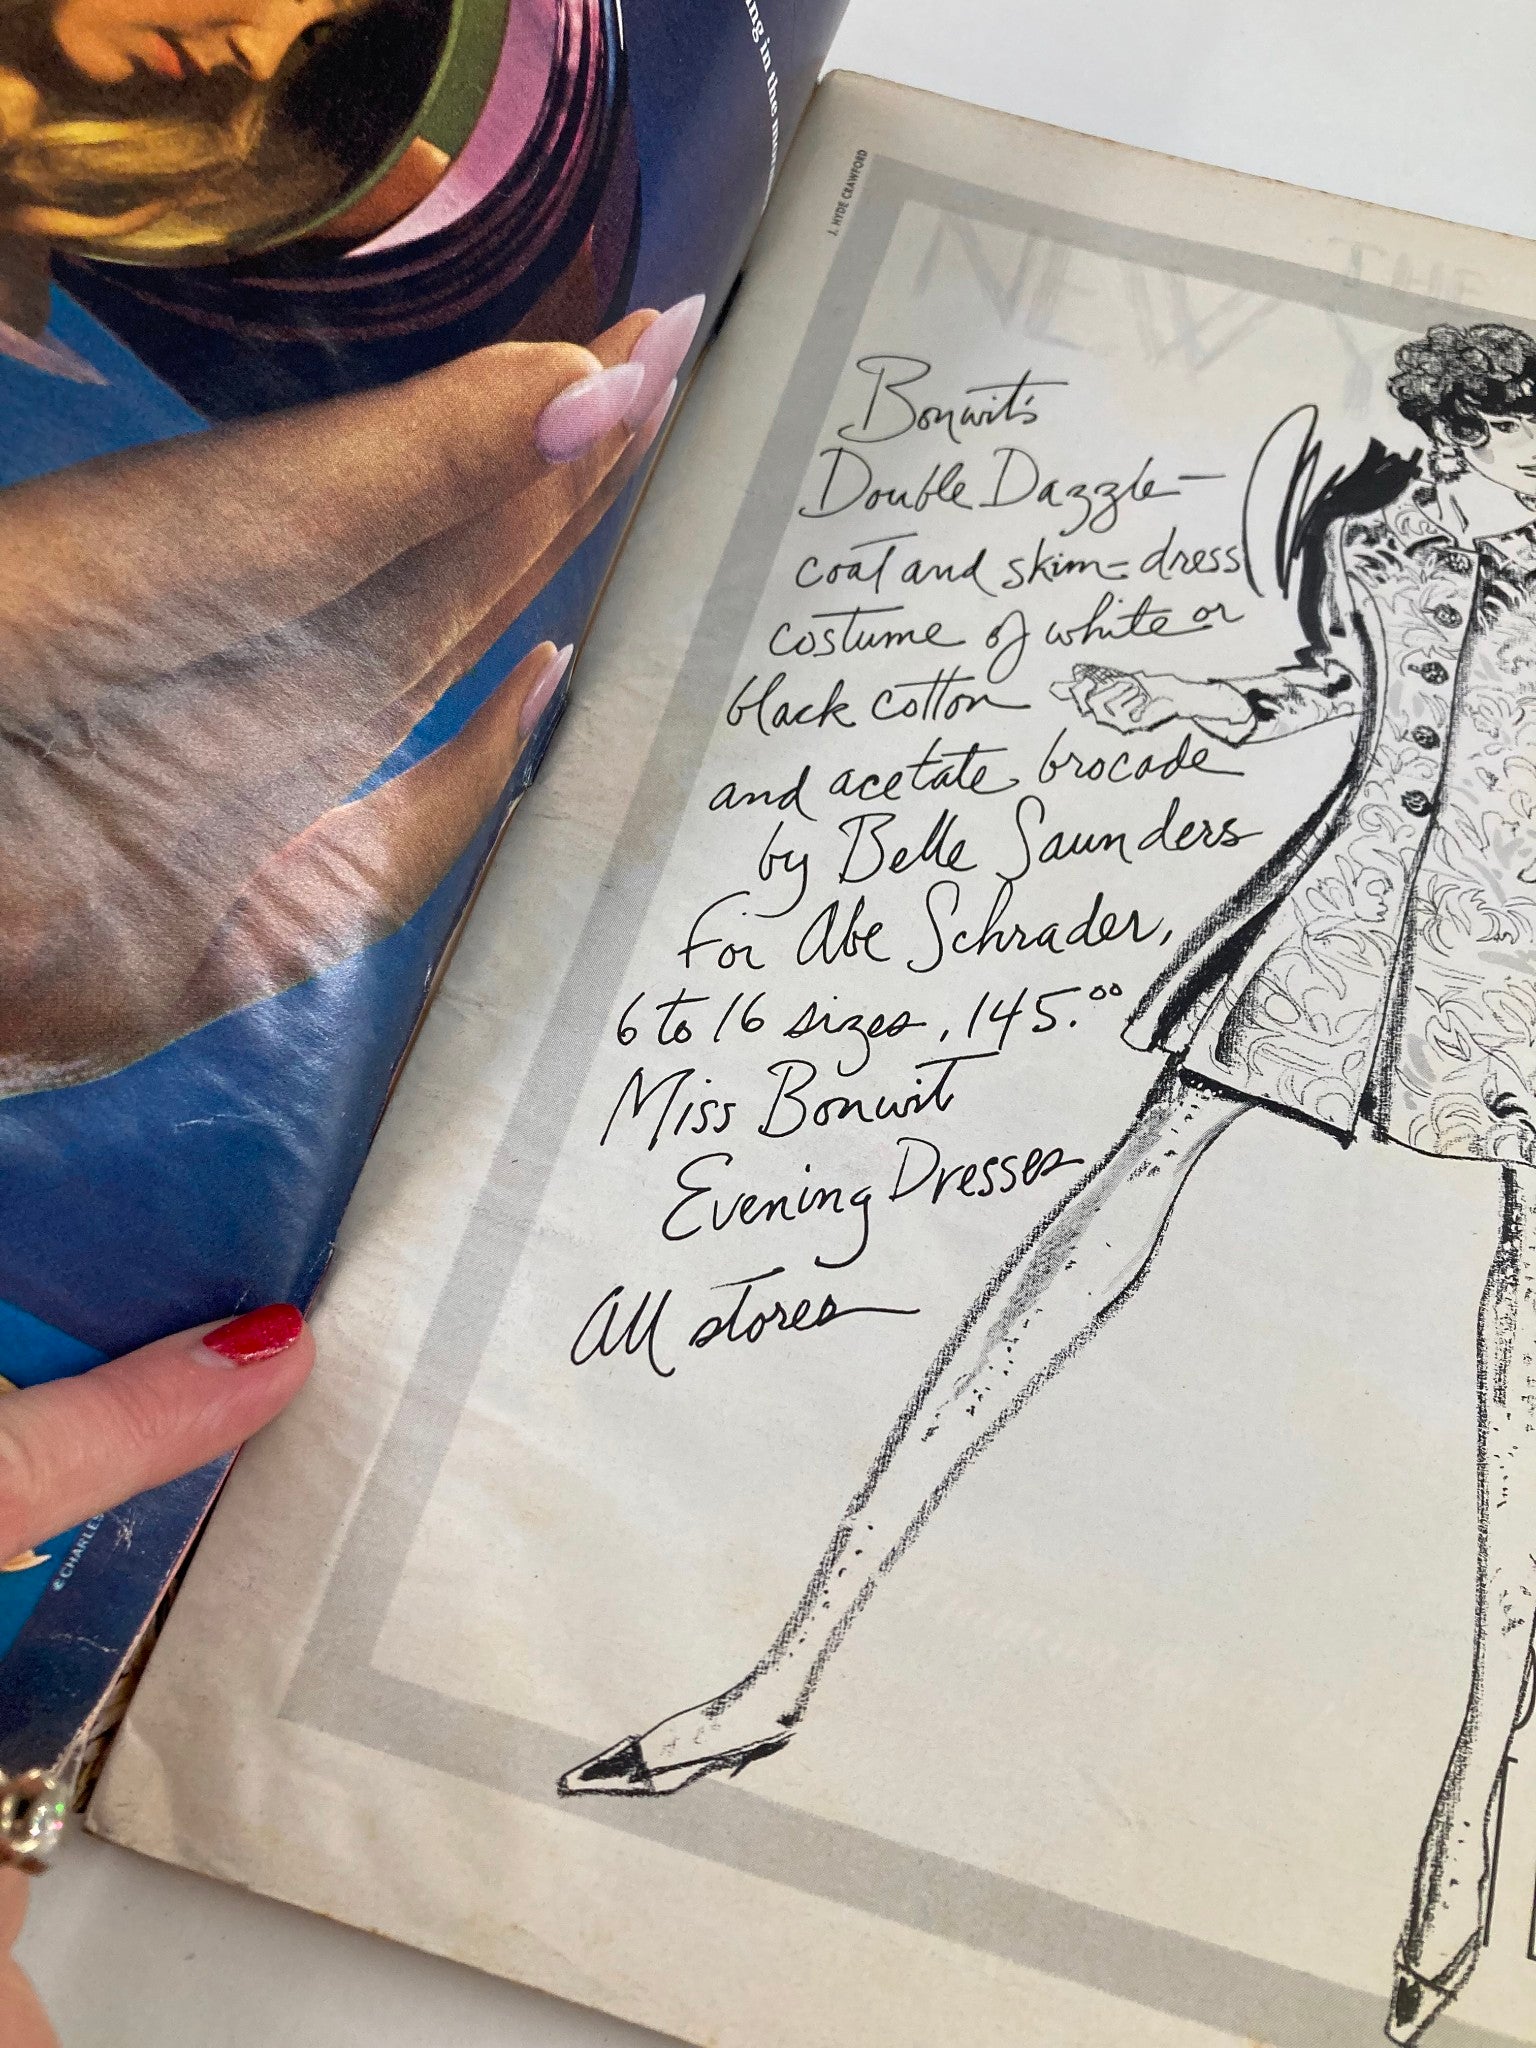 ng in the
J. HYDE CRAWFORD
NEW
THE
Bonwit's
Double Dazzle—
coat and skim-dress
costume of white or
black cotton
and acetate brocade
by Belle Saunders
For Abe Schrader,
6 to 16 sizes, 145.00
Miss Bonwit
Evening Dresses
All stores
© CHARLES